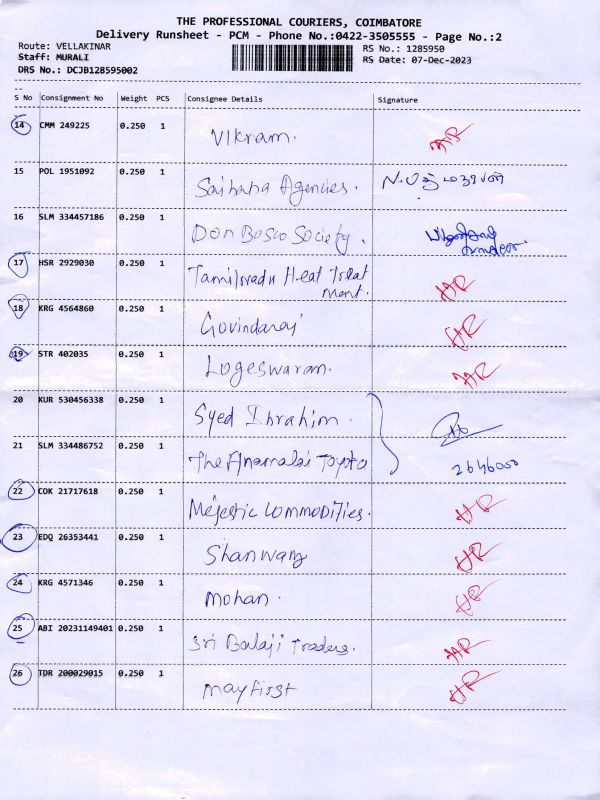 THE PROFESSIONAL COURIERS, COIMBATORE
Delivery Runsheet - PCM - Phone No.:0422-3505555 - Page No.:2
Route: VELLAKINAR
RS No.: 1285950
Staff: MURALI
RS Date: 07-Dec-2023
DRS No.: DCJB128595002
S No Consignment No Weight PCS Consignee Details Signature
14 CMM 249225 0.250 1 Vikram. HR
15 POL 1951092 0.250 1 Saibaba Agencies.
16 SLM 334457186 0.250 1 Don Bosco Society.
17 HSR 2929030 0.250 1 Tamilnadu Heat Treat HR
ment.
18 KRG 4564860 0.250 1 Govindaraj HR
19 STR 402035 0.250 1 Logeswaram. HR
20 KUR 530456338 0.250 1 Syed Ibrahim.
21 SLM 334486752 0.250 1 The Anamalai Toyoto 2646000
22 COK 21717618 0.250 1 Mejestic Commodities. HR
23 EDQ 26353441 0.250 1 Shanwang HR
24 KRG 4571346 0.250 1 Mohan. HR
25 ABI 20231149401 0.250 1 Sri Balaji Traders. HR
26 TDR 200029015 0.250 1 mayfirst HR